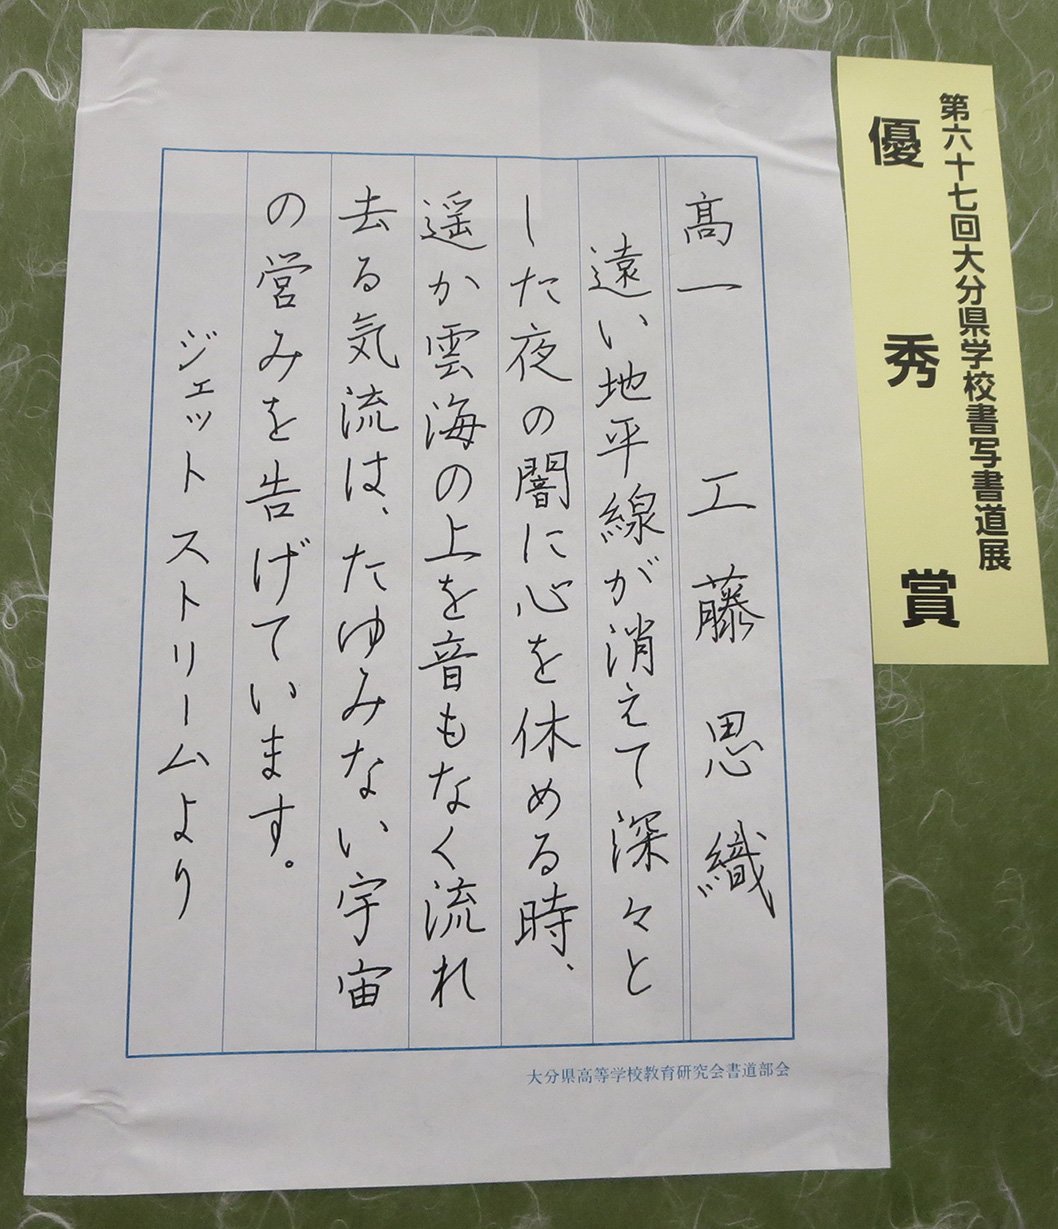 第六十七回大分県学校書写書道展
優秀賞
高一 工藤思織
遠い地平線が消えて深々と
した夜の闇に心を休める時、
遥か雲海の上を音もなく流れ
去る気流は、たゆみない宇宙
の営みを告げています。
ジェットストリームより
大分県高等学校教育研究会書道部会